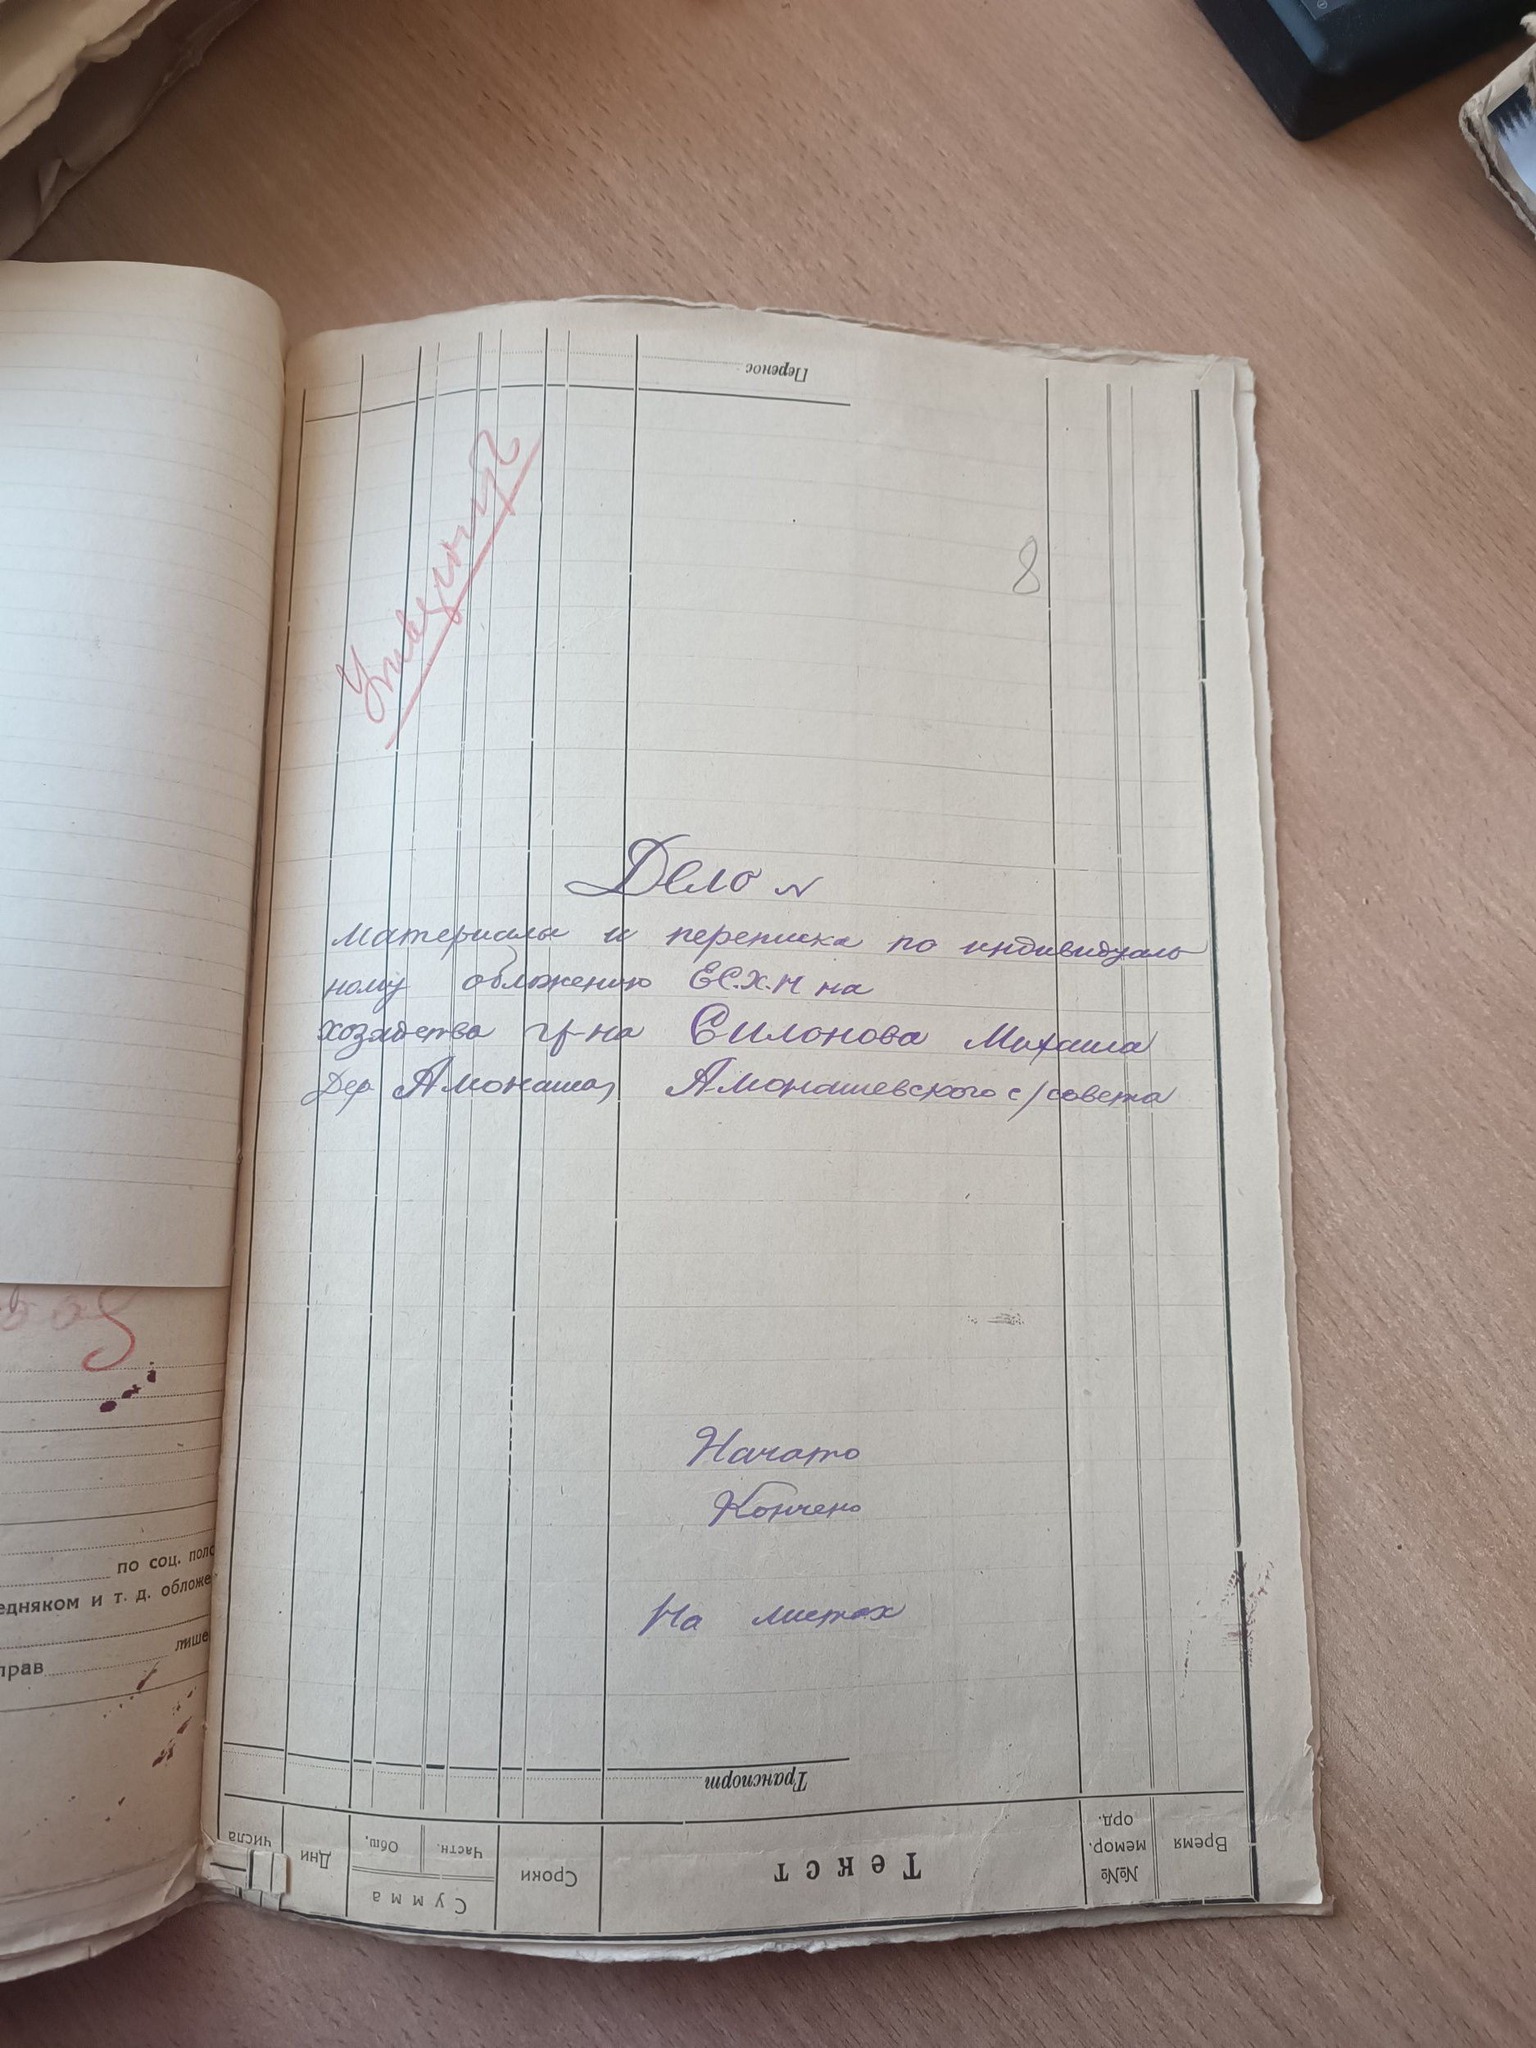 Перенос
8
Дело №
Материалы и переписка по индивидуаль
ному обложению ЕС.Х.Н на
хозяйства гр-на Силонова Михаила
Дер Амонаша, Амонашевского с/совета
Начато
Кончено
На листах
Транспорт
Время
№№ мемор. орд.
Текст
Сроки
Сумма
Частн.
Общ.
Дни
числа
по соц. поло
едняком и т. д. обложе
прав лише